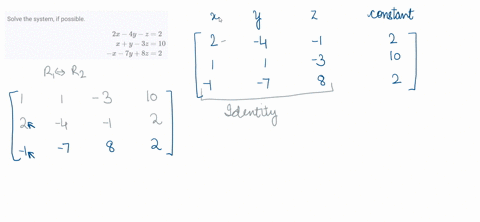 Solve the system, if possible.
2x − 4y − z = 2
x + y − 3z = 10
−x − 7y + 8z = 2
x y z constant
2 -4 -1 2
1 1 -3 10
-1 -7 8 2
Identity
R₁↔R₂
1 1 -3 10
2 -4 -1 2
-1 -7 8 2